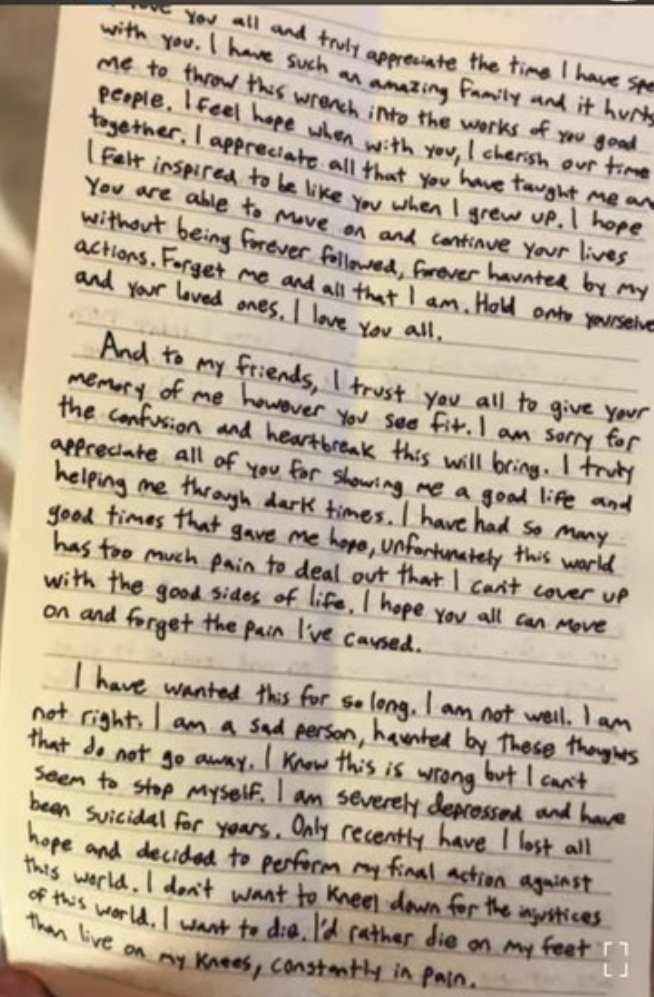 love you all and truly appreciate the time I have spe
with you. I have such an amazing family and it hurts
me to throw this wrench into the works of you good
people. I feel hope when with you, I cherish our time
together. I appreciate all that you have taught me an
I felt inspired to be like you when I grew up. I hope
you are able to move on and continue your lives
without being forever followed, forever haunted by my
actions. Forget me and all that I am. Hold onto yourselve
and your loved ones. I love you all.
And to my friends, I trust you all to give your
memory of me however you see fit. I am sorry for
the confusion and heartbreak this will bring. I truly
appreciate all of you for showing me a good life and
helping me through dark times. I have had so many
good times that gave me hope, unfortunately this world
has too much pain to deal out that I can't cover up
with the good sides of life. I hope you all can move
on and forget the pain I've caused.
I have wanted this for so long. I am not well. I am
not right. I am a sad person, haunted by these thoughts
that do not go away. I know this is wrong but I can't
seem to stop myself. I am severely depressed and have
been suicidal for years. Only recently have I lost all
hope and decided to perform my final action against
this world. I don't want to kneel down for the injustices
of this world. I want to die. I'd rather die on my feet
than live on my knees, constantly in pain.